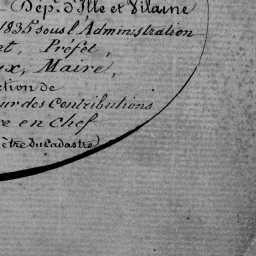 Dép. d'Ille et Vilaine
1835 sous l'Administration
et, Préfèt,
ux, Maire,
ction de
eur des Contributions
re en Chef
ètre du Cadastre)